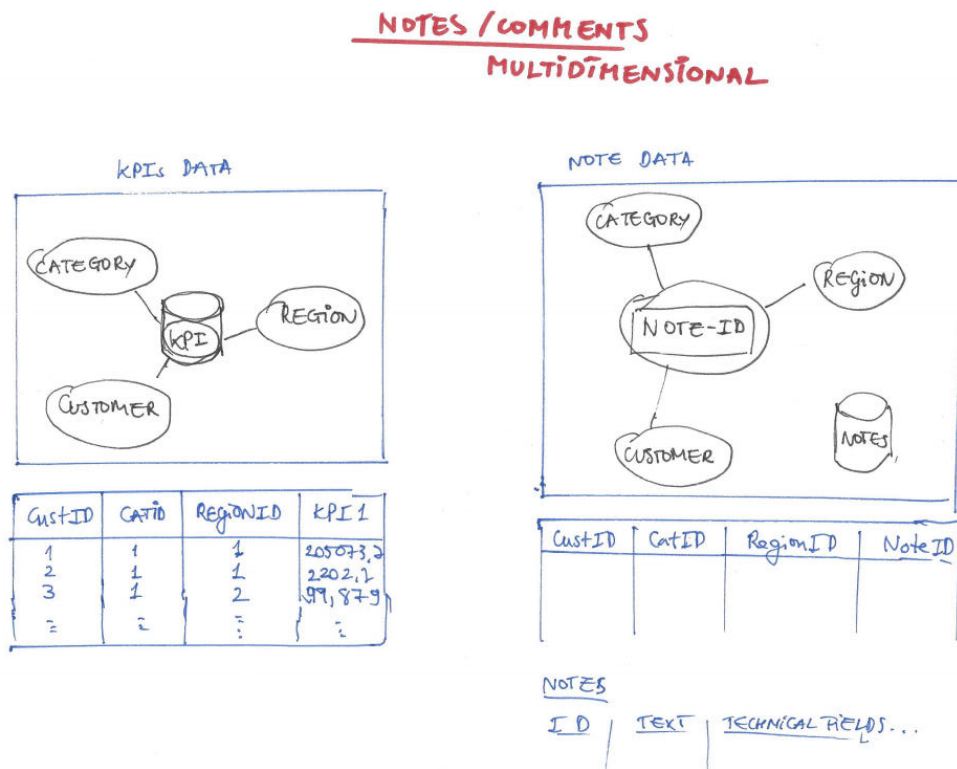 NOTES / COMMENTS
MULTIDIMENSIONAL
KPIs DATA
CATEGORY
REGION
KPI
CUSTOMER
CustID CATID REGIONID KPI1
1 1 1 205073,2
2 1 1 2202,1
3 1 2 99,879
NOTE DATA
CATEGORY
REGION
NOTE-ID
CUSTOMER
NOTES
CustID CatID RegionID NoteID
NOTES
ID TEXT TECHNICAL FIELDS...